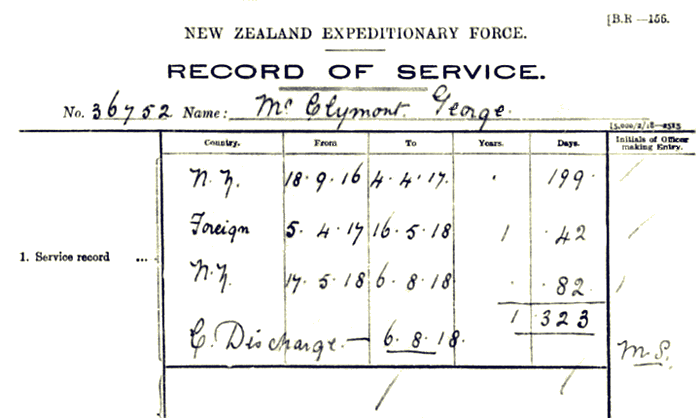 [B.R.—156.
NEW ZEALAND EXPEDITIONARY FORCE.
RECORD OF SERVICE.
No. 36752 Name: McClymont. George.
[5,000/2/18—2515
Country. From To Years. Days. Initials of Officer making Entry.
N.Z. 18.9.16 4.4.17. . 199.
Foreign 5.4.17 16.5.18 1 .42
1. Service record ...
N.Z. 17.5.18 6.8.18 . .82.
1 .323
C. Discharge.— 6.8.18.
M.S.